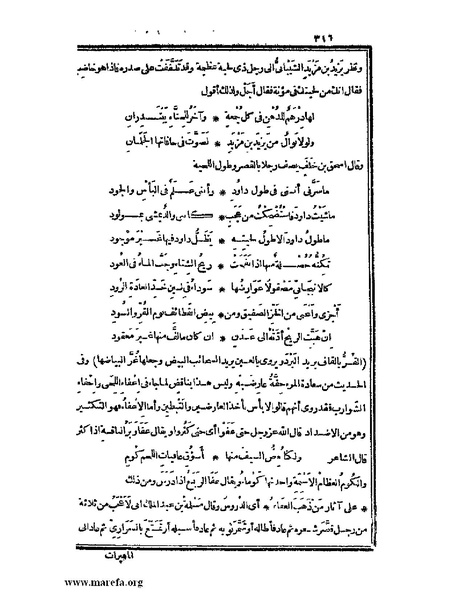 ٣١٦
ونظر يزيد بن مزيد الشيبانى الى رجل ذى لحية عظيمة وقد تلففت على صدره فاذا هو خاضب
فقال انك من لحيتك فى مؤنة فقال أجل ولذلك أقول
لها درهم للدهن فى كل جمعة * وآخر للحناء يبتدران
ولولا نوال من يزيد بن مزيد * لصوت فى حافاتها الجلمان
وقال اسحق بن خلف يصف رجلا بالقصر وطول اللحية
ما سرنى أننى فى طول داود * وأننى علم فى البأس والجود
ماشيت داود فاستضحكت من عجب * كأننى والد يمشى بمولود
ما طول داود الا طول لحيته * يظل داود فيها غير موجود
تكنه خصلة منها اذا نفحت * ريح الشتاء وجف الماء فى العود
كالانبجانى مصقولا عوارضها * سوداء فى لين خد الغادة الرود
أجزى وأغنى من الخز الصفيق ومن * بيض القطائف يوم القر والسود
ان هبت الريح أدته الى عدن * ان كان ما لف منها غير معقود
(القر بالقاف يريد البرد ويروى بالعين يريد العصائب البيض وجعلها غر البياضها) وفى
الحديث من سعادة المرء خفة عارضيه وليس هذا بناقض لما جاء فى اعفاء اللحى واحفاء
الشوارب فقد روى أنهم قالوا لا بأس بأخذ العارضين والتبطين وأما الاعفاء فهو التكثير
وهو من الاضداد قال الله عز وجل حتى عفوا أى حتى كثروا ويقال عفا وبر الناقة اذا كثر
قال الشاعر ولكنا نعض السيف منها * بأسوق عافيات اللحم كوم
والكوم العظام الاسنمة واحدتها كوماء ويقال عفا الربع اذا درس ومن ذلك
* على آثار من ذهب العفاء * أى الدروس وقال مسلمة بن عبد الملك انى لأعجب من ثلاثة
من رجل قصر شعره ثم عاد فأطاله أو شمر ثوبه ثم عاد فأسبله أو تمتع بالسرارى ثم عاد الى
المهيرات
www.marefa.org